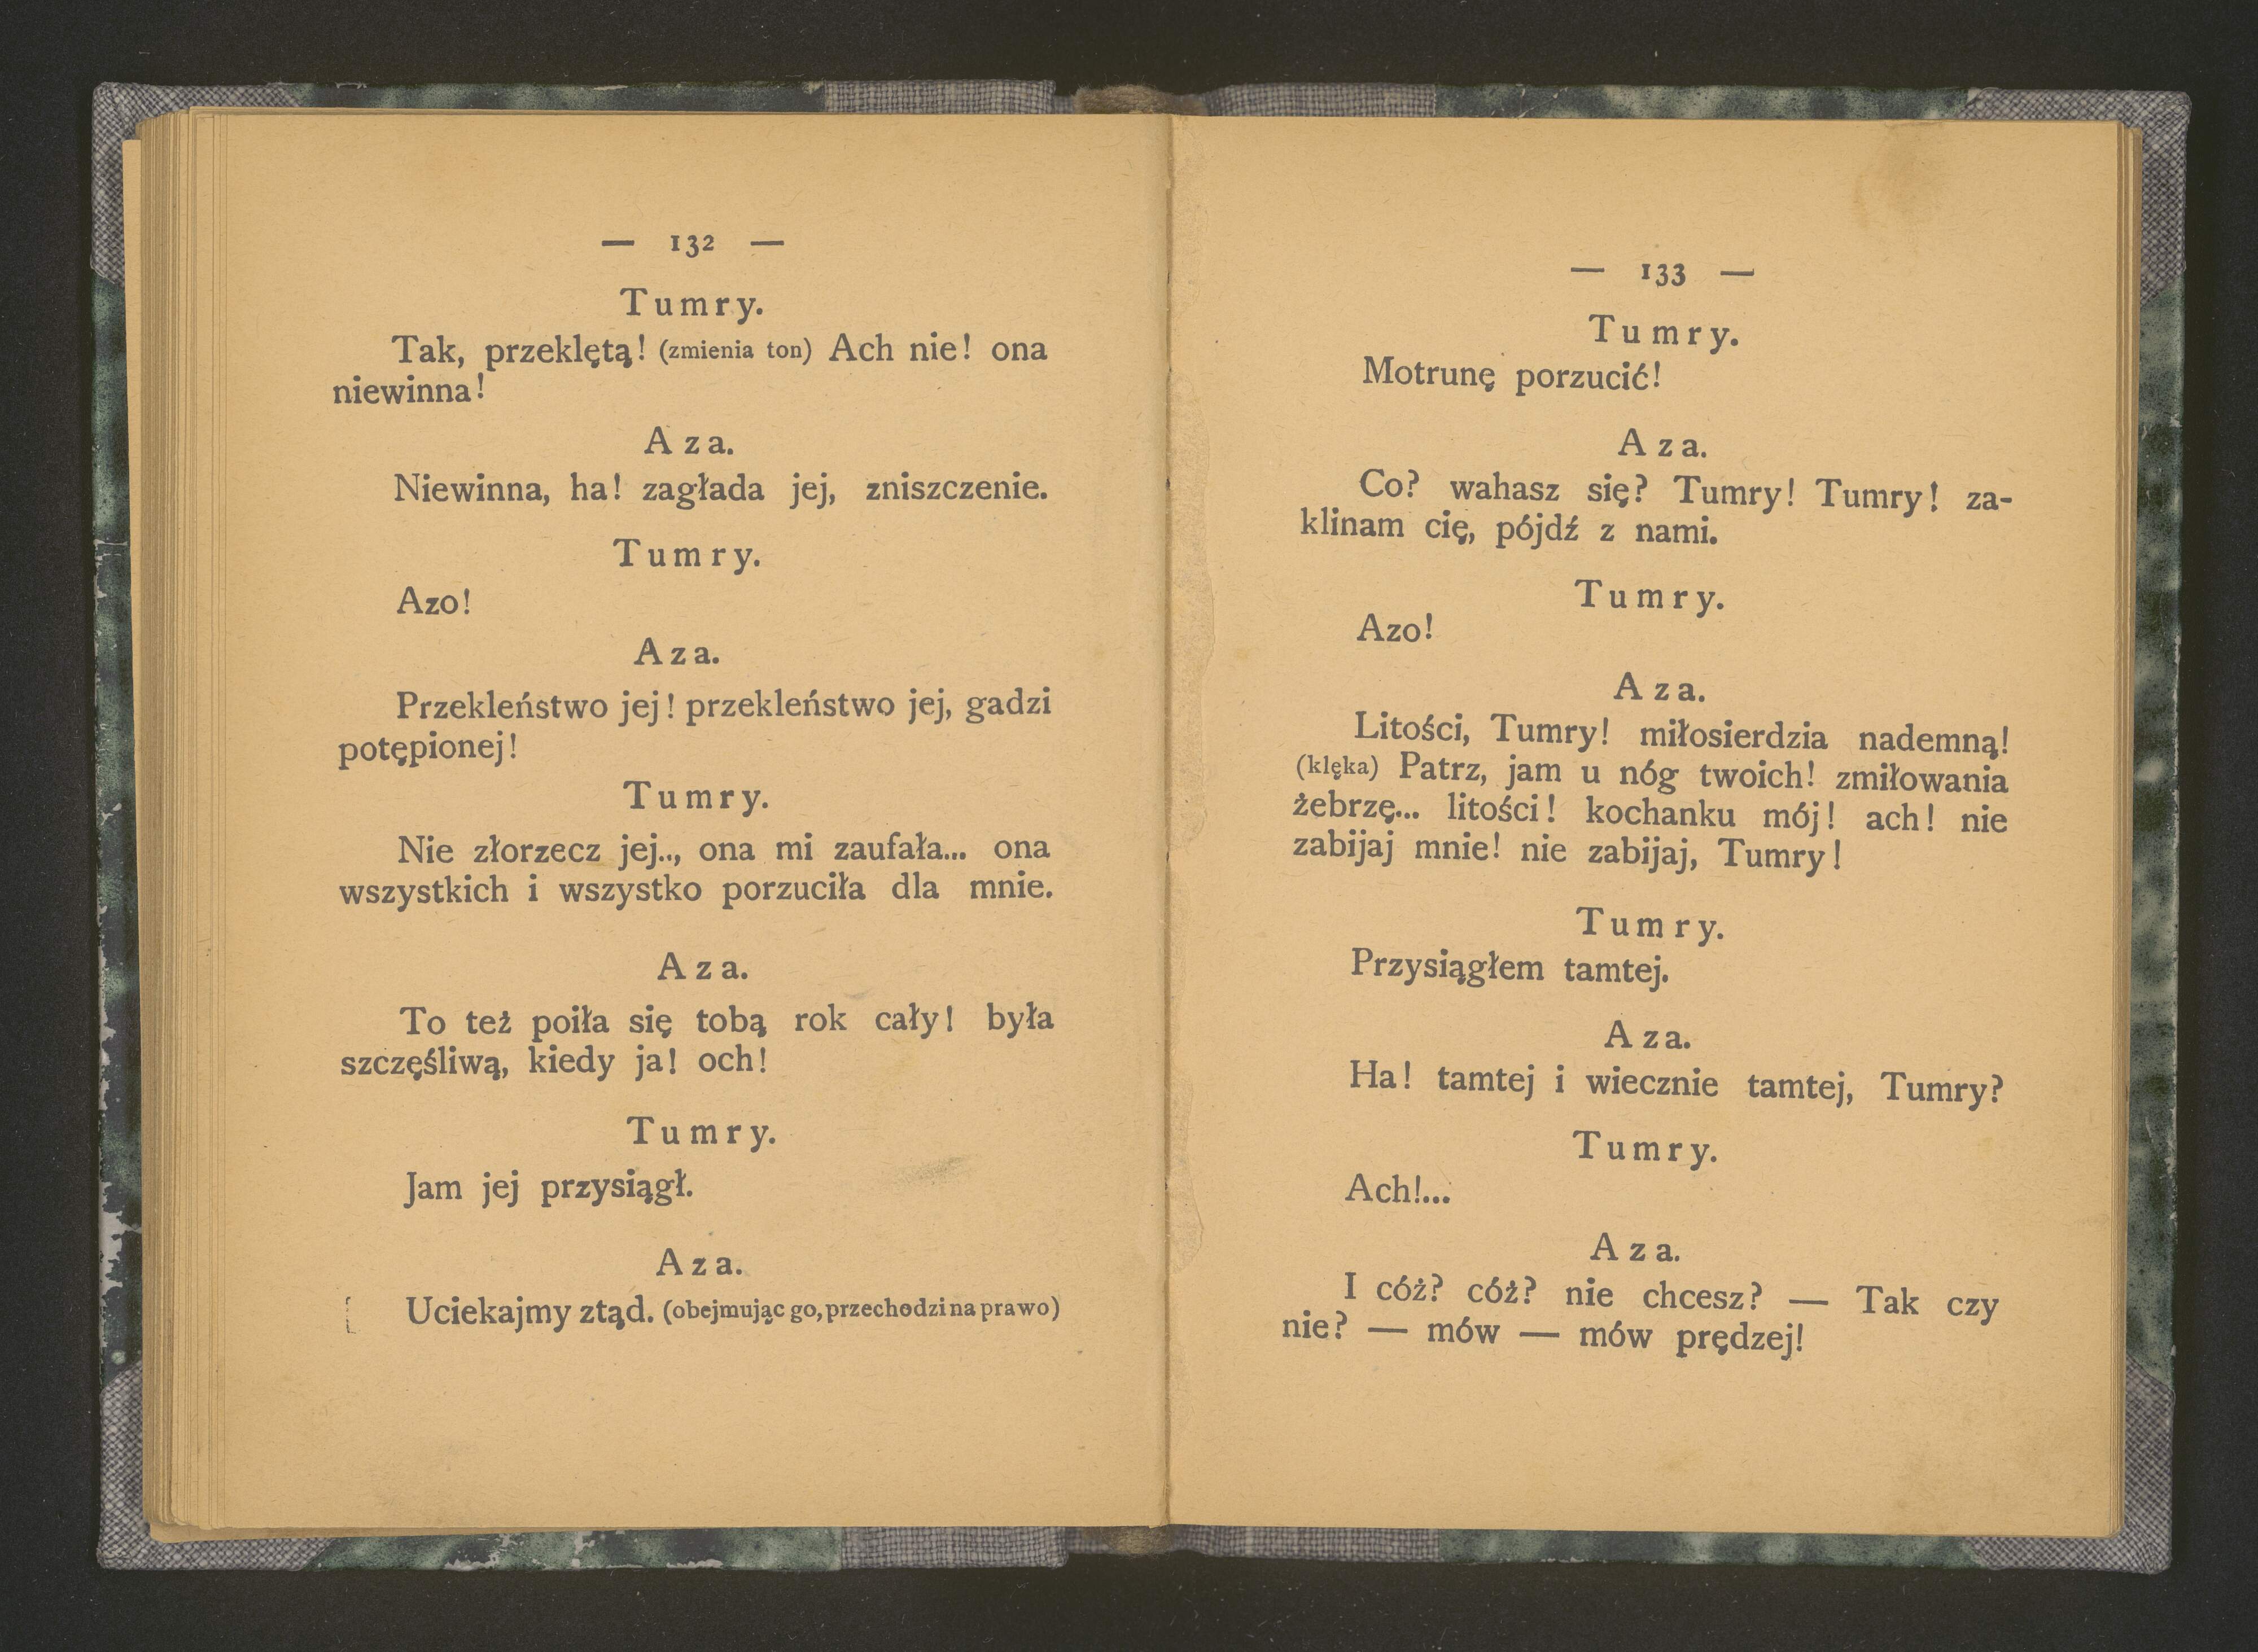 — 132 —
Tumry.
Tak, przeklętą! (zmienia ton) Ach nie! ona
niewinna!
Aza.
Niewinna, ha! zagłada jej, zniszczenie.
Tumry.
Azo!
Aza.
Przekleństwo jej! przekleństwo jej, gadzi
potępionej!
Tumry.
Nie złorzecz jej.., ona mi zaufała... ona
wszystkich i wszystko porzuciła dla mnie.
Aza.
To też poiła się tobą rok cały! była
szczęśliwą, kiedy ja! och!
Tumry.
Jam jej przysiągł.
Aza.
Uciekajmy ztąd. (obejmując go, przechodzi na prawo)
— 133 —
Tumry.
Motrunę porzucić!
Aza.
Co? wahasz się? Tumry! Tumry! za-
klinam cię, pójdź z nami.
Tumry.
Azo!
Aza.
Litości, Tumry! miłosierdzia nademną!
(klęka) Patrz, jam u nóg twoich! zmiłowania
żebrzę... litości! kochanku mój! ach! nie
zabijaj mnie! nie zabijaj, Tumry!
Tumry.
Przysiągłem tamtej.
Aza.
Ha! tamtej i wiecznie tamtej, Tumry?
Tumry.
Ach!...
Aza.
I cóż? cóż? nie chcesz? — Tak czy
nie? — mów — mów prędzej!